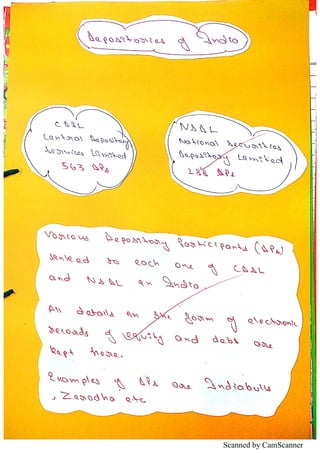 Depositories of India
CDSL
Central Depository
Services Limited
563 DPs
NSDL
National Securities
Depository Limited
288 DPs
Various Depository Participants (DPs)
linked to each one of CDSL
and NSDL in India
All details in the form of electronic
records of equity and debt are
kept here.
Examples of DPs are Indiabulls
, Zerodha etc
Scanned by CamScanner